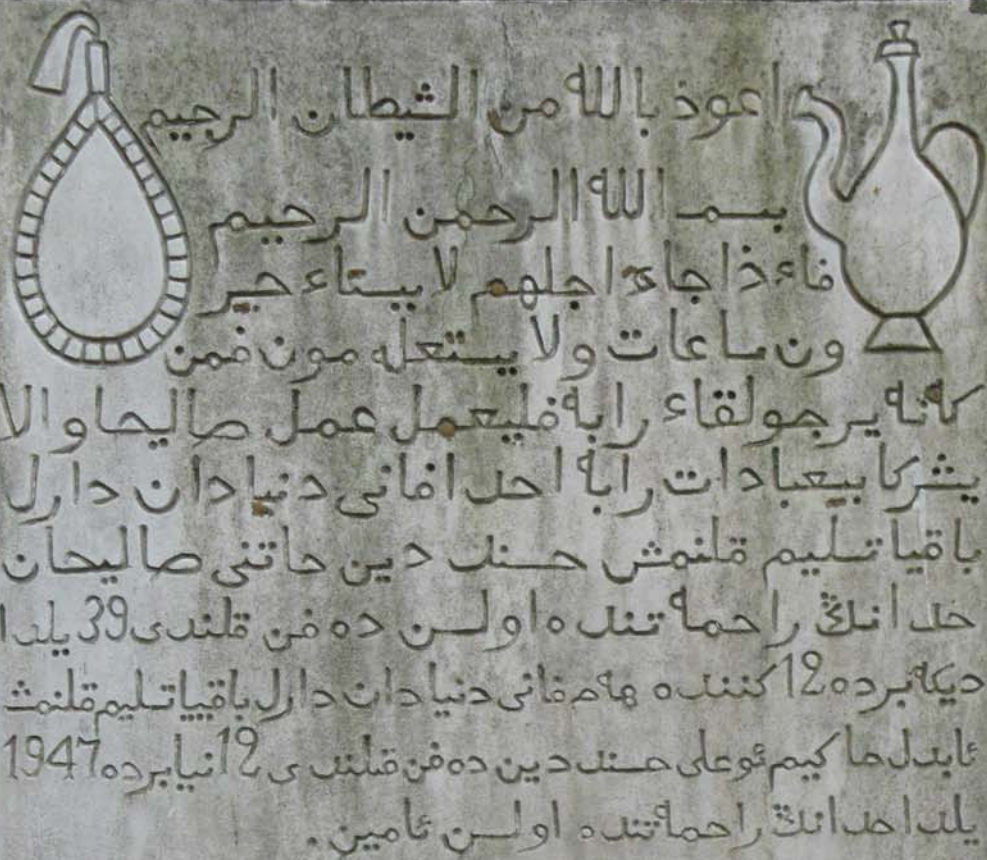 اعوذ باالله من الشيطان الرجيم
بسم االله الرحمن الرحيم
فاء ذا جاء اجلهم لا يستاء خير
ون ساعات ولا يستعله مون فمن
كه نه يرجولقاء رابه فليعمل عمل صاليحاوالا
يشركا بيعبادات رابه احد افانى دنيادان دارل
باقيا تسليم قلنمش حسند دين حاتنى صاليحان
خدانڭ راحمه تنده اولسن ده فن قلندى 39 يلدا
ديكه برده 12 كننده هم فانى دنيادان دارل باقيا تسليم قلنمش
ئابدل حاكيم ئوعلى حسند دين ده فن قلندى 12 نيابرده 1947
يلدا خدانڭ راحمه تنده اولسن ئامين.